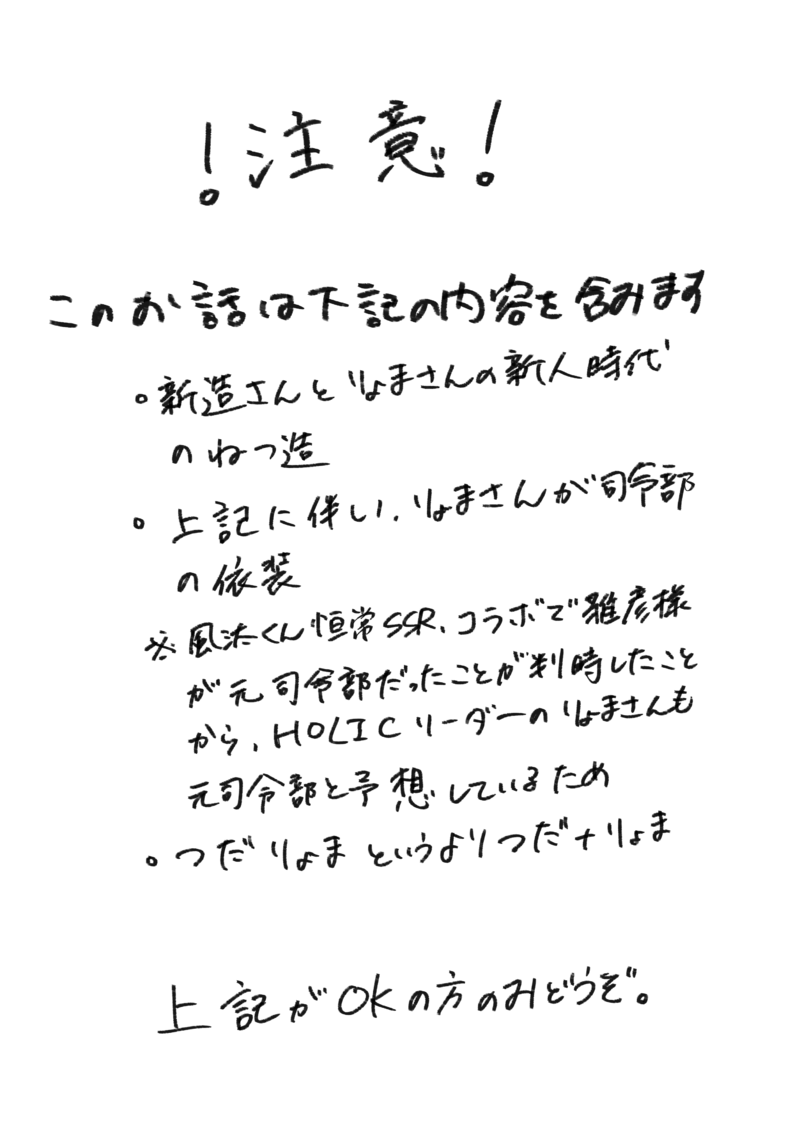 !注意!
このお話は下記の内容を含みます
。新造さんとりょまさんの新人時代
のねつ造
。上記に伴い、りょまさんが司令部
の依装
※風汰くん恒常SSR、コラボで雅彦様
が元司令部だったことが判時したこと
から、HOLICリーダーのりょまさんも
元司令部と予想しているため
。つだりょまというよりつだ+りょま
上記がOKの方のみどうぞ。